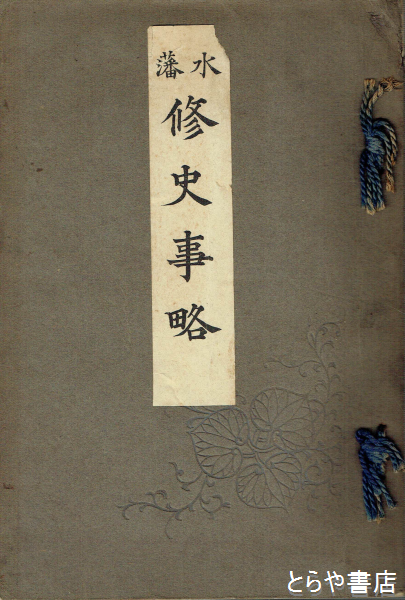 水藩
修史事略
とらや書店